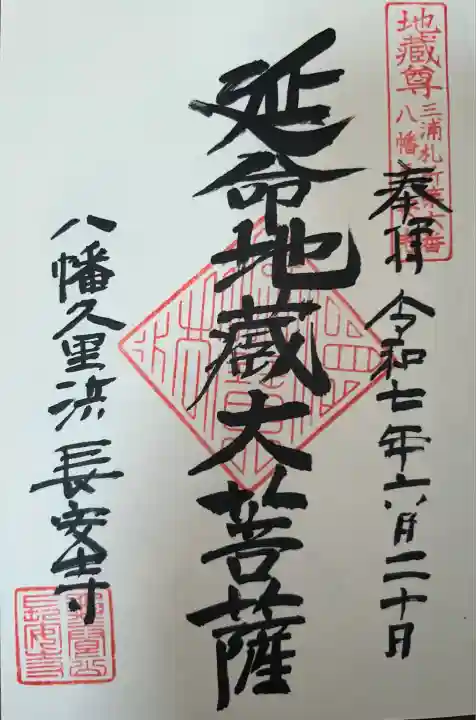 地蔵尊
三浦札所第六番
八幡
奉拝
令和七年六月二十日
延命地蔵大菩薩
八幡久里浜 長安寺